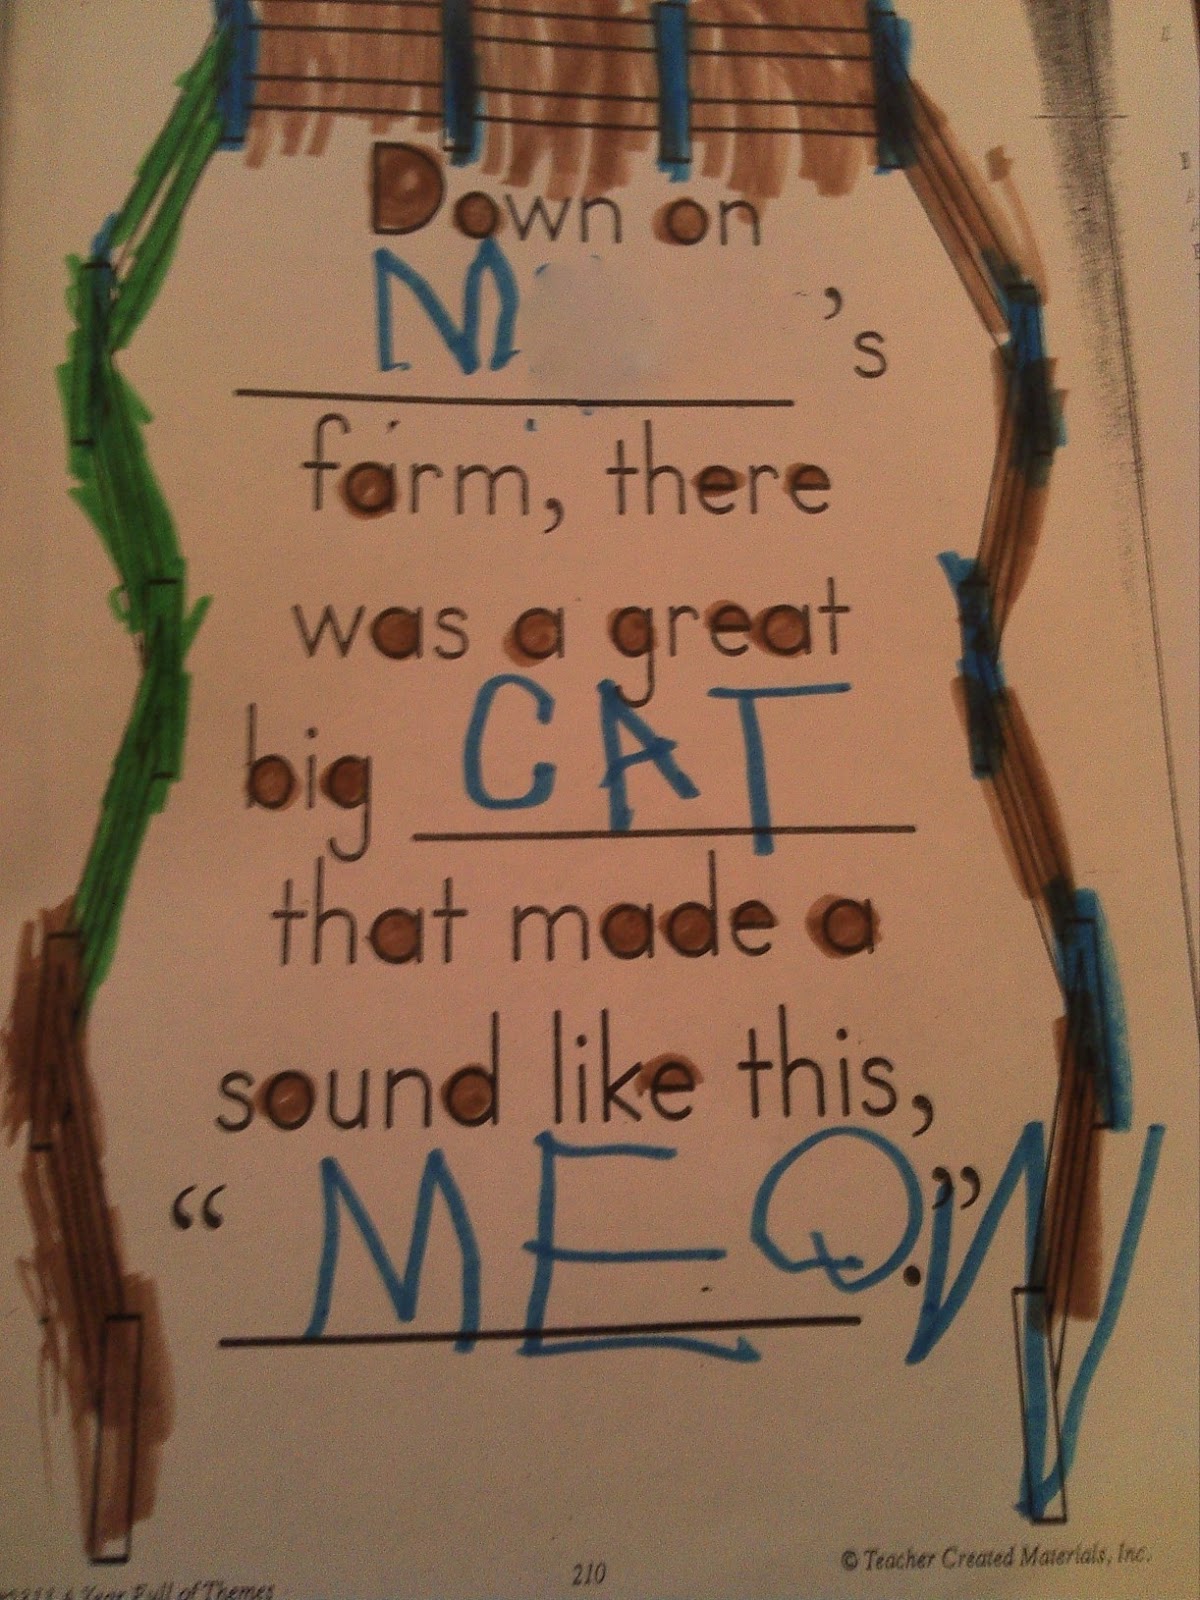 Down on
M 's
farm, there
was a great
big CAT
that made a
sound like this,
“ MEOW .”
210
© Teacher Created Materials, Inc.
A Year Full of Themes